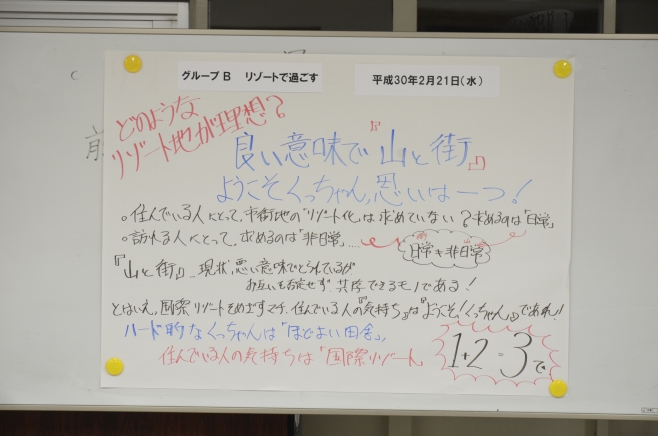 グループB リゾートで過ごす
平成30年2月21日(水)
どのような
リゾート地が理想?
良い意味で『山と街』
ようこそくっちゃん,思いは一つ!
。住んでいる人にとって,市街地の"リゾート化"は求めていない?求めるのは「日常」
。訪れる人にとって,求めるのは「非日常」....
日常+非日常
『山と街』 現状,悪い意味でとらえているが
お互いを否定せず,共存できるモノである!
とはいえ,国際リゾートをめざすマチ,住んでいる人の『気持ち』は『ようこそ!くっちゃん』であれ!!
ハード的なくっちゃんは「ほどよい田舎」,
住んでいる人の気持ちは「国際リゾート」
1+2=3で